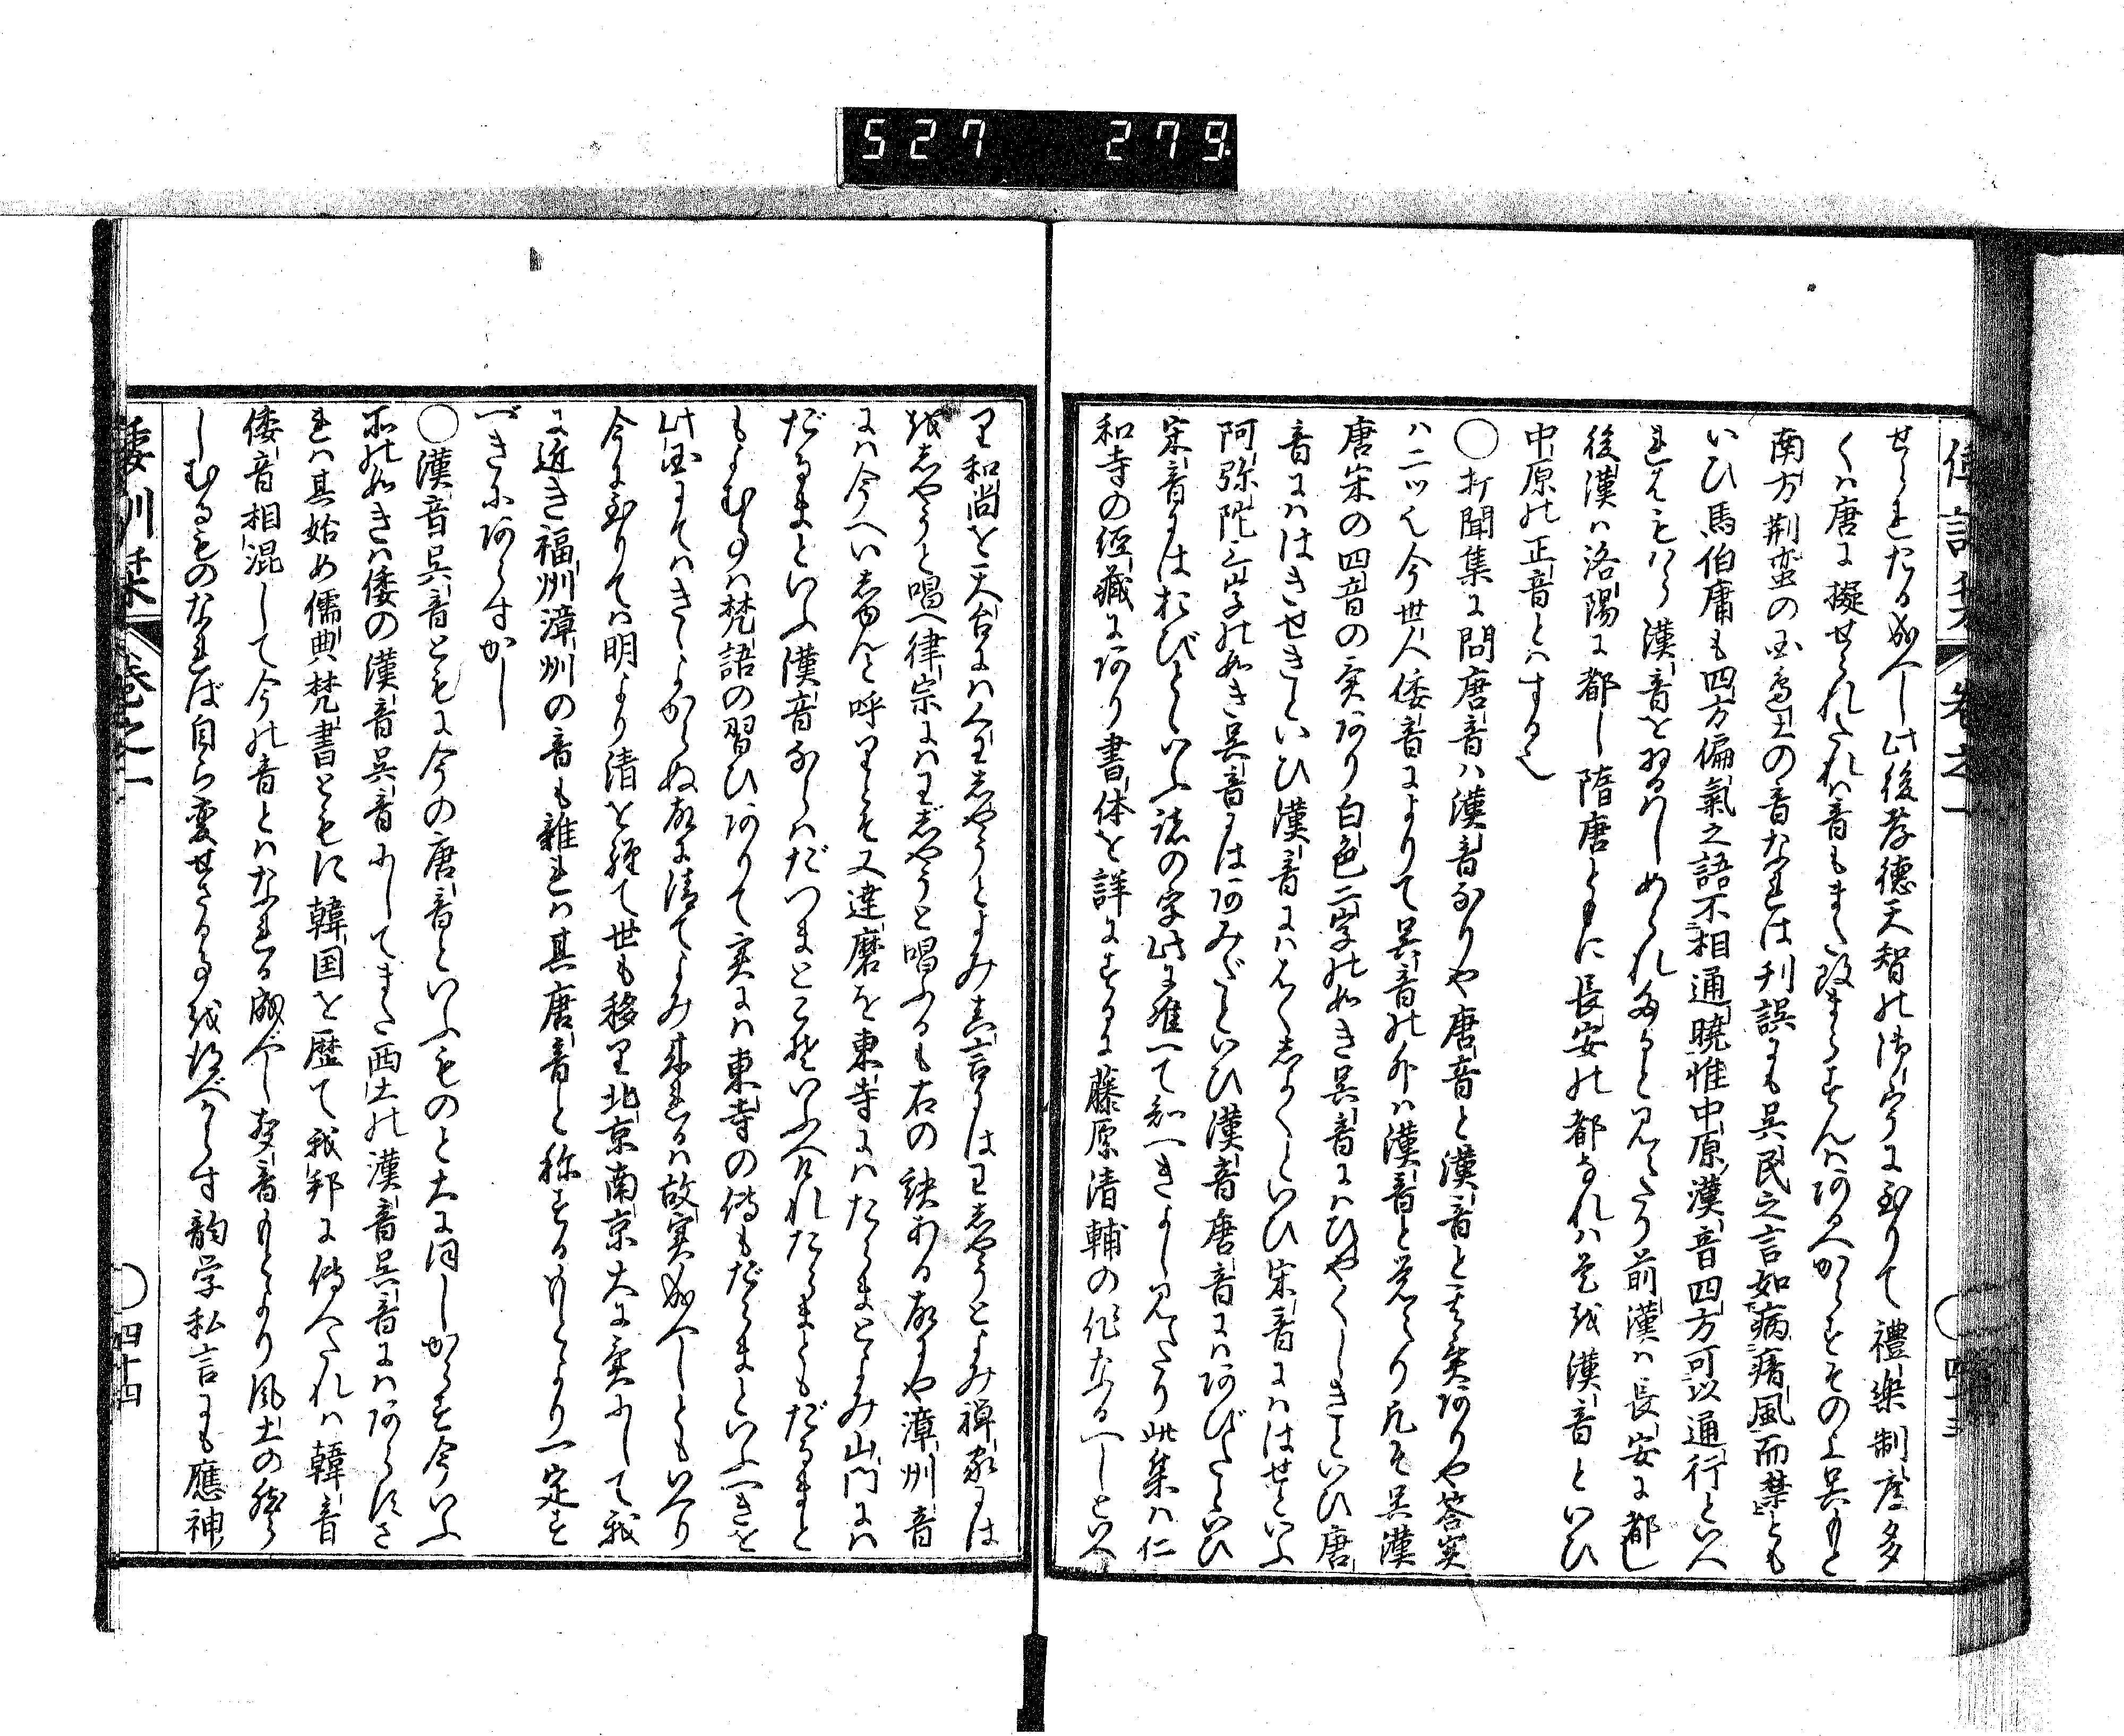 527 279
せられたる成へし此後孝徳天智の御宇に至りて禮楽制度多
くハ唐に擬せられたれハ音もまた改まらすんハあるへからすその上呉もと
南方荆蛮の国邊土の音なれは刊誤にも呉民之言如病瘖風而噤とも
いひ馬伯庸も四方偏氣之語不相通暁惟中原漢音四方可以通行といへ
れともハら漢音を習ハしめられたると見えたり前漢ハ長安に都し
後漢ハ洛陽に都し隋唐ともに長安の都なれハ是を漢音といひ
中原の正音とハする也
○打聞集に問唐音ハ漢音なりや唐音と漢音と其実ありや答実
ハ二ツ也今世人倭音によりて呉音の外ハ漢音と覚えり凡そ呉漢
唐宋の四音の実あり白色二字の如き呉音にハひやくしきといひ唐
音にハはきせきといひ漢音にハはくしよくといひ宋音にハはせといふ
阿弥陀三字の如き呉音にはあみだといひ漢音唐音にハあびたといひ
宋音にはおびとといふ諸の字此に准へて知へきよし見えたり此集ハ仁
和寺の經藏にあり書体を詳にするに藤原清輔の作なるへしといへ
倭訓栞 巻之一 ○四十三
り和尚を天台にハくわしやうとよみ真言にはわしやうとよみ禅家には
をしやうと唱へ律宗にハわじやうと唱ふるも右の訣ある故にや漳州音
にハ今へいしゆんと呼りとそ又達磨を東寺にハたらまとよみ山門にハ
だるまといふ漢音ならハだつまとこそいふへけれたらまともだるまと
もよむ事ハ梵語の習ひありて実にハ東寺の傳もだらまといふへきを
此国にてハきゝよからぬ故に清てよみ来れるハ故実成へしともいへり
今に至りてハ明より清を経て世も移り北京南京大に実にして我
に近き福州漳州の音も雑れハ其唐音と称するもとより一定す
べきにあらすかし
○漢音呉音ともに今の唐音といふものと大に同しからす今いふ
所の如きハ倭の漢音呉音にしてまた西土の漢音呉音にハあらすさ
れハ其始め儒典梵書ともに韓国を歴て我邦に傳へたれハ韓音
倭音相混して今の音とハなれる成べし聲音もとより風土の然ら
しむるものなれば自ら変せさる事を得べからす韵学私言にも應神
倭訓栞 巻之一 ○四十四